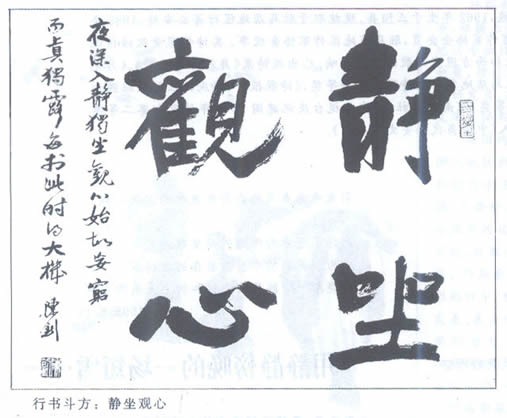 静坐
觀心
夜深人静獨坐觀心始知妄窮
而真獨露每於此时得大機
行书斗方：静坐观心